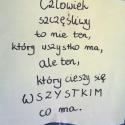 Człowiek
szczęśliwy
to nie ten,
który wszystko ma,
ale ten,
który cieszy się
WSZYSTKIM
co ma.